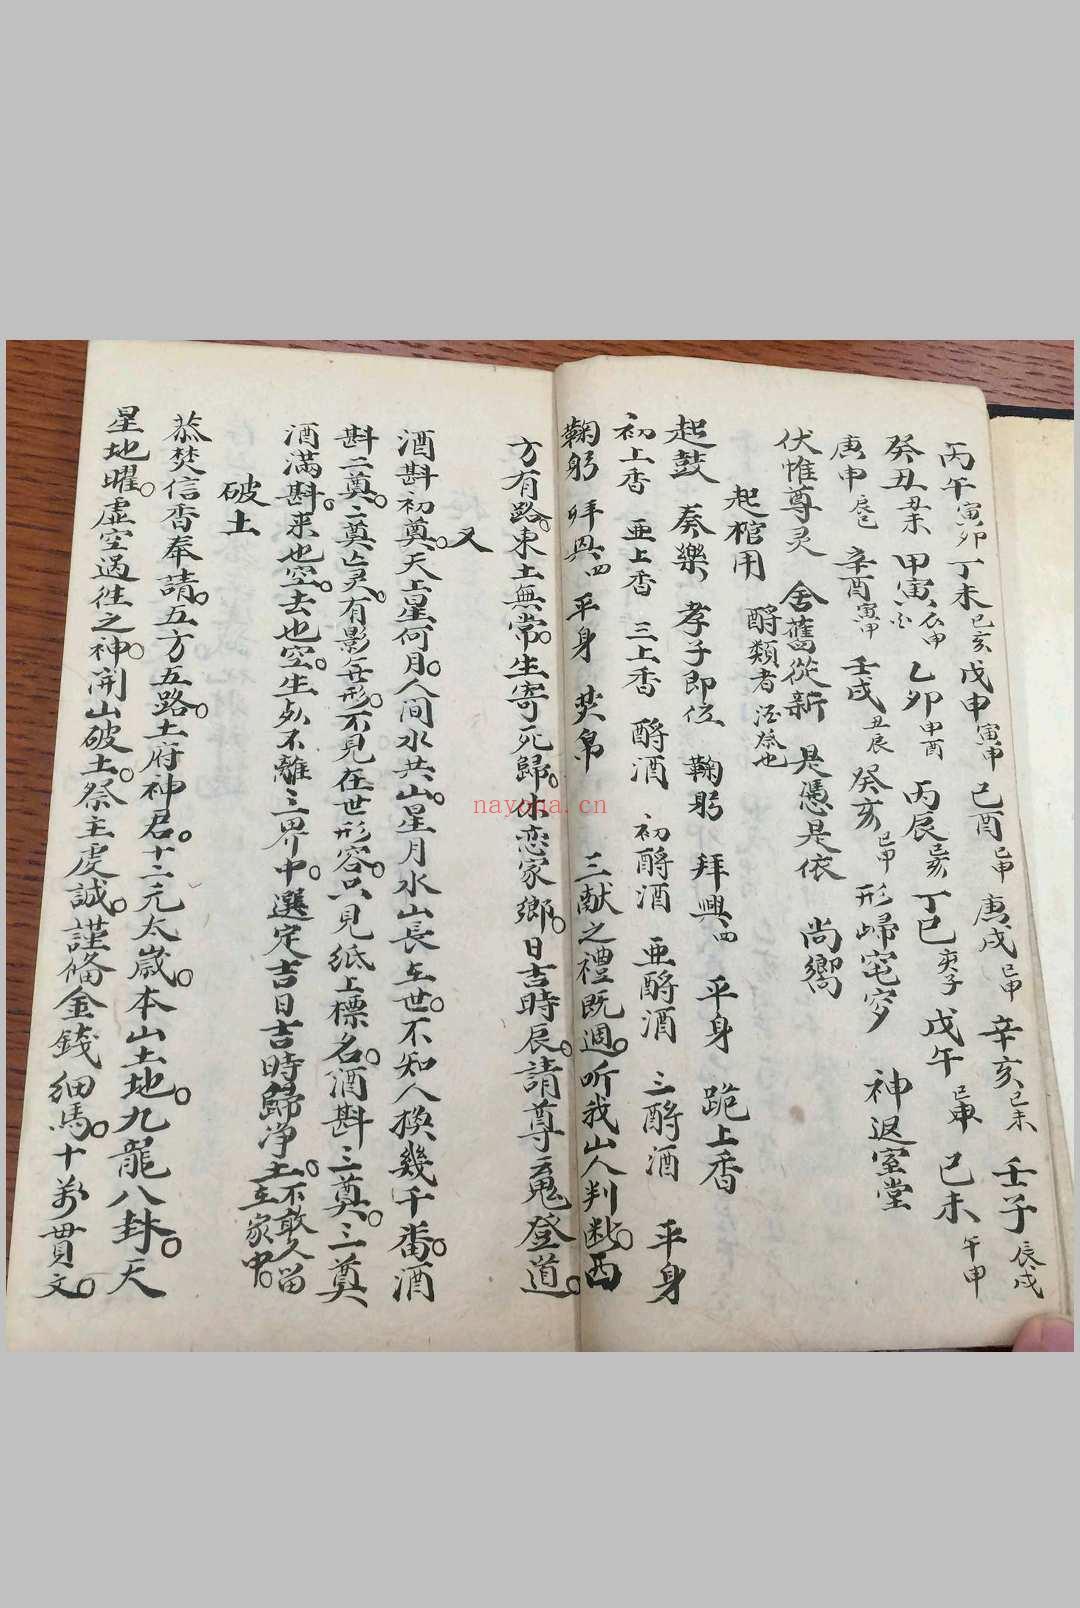 丙午寅卯丁未巳亥戊申寅申己酉巳申庚戌巳申辛亥巳未壬子辰戌
癸丑丑未甲寅乙卯甲酉丙辰巳亥丁巳庚子戊午己未午申
庚申辰巳辛酉寅申壬戌丑辰癸亥巳申形歸窀穸神退室堂
伏惟尊灵舍舊從新是憑是依尚嚮
起棺用酹類者酒祭也
起鼓奏樂孝子即位鞠躬拜興四平身跪上香
初上香亜上香三上香酹酒初酹酒亜酹酒三酹酒平身
鞠躬拜興四平身焚帛三献之禮既週听我山人判断西
方有路東土無常生寄死歸休恋家鄉日吉時辰請尊霊登道
又
酒斟初奠天上星何月人间水共山星月水山長在世不知人換幾千番酒
斟二奠二奠亡灵有影無形不見在世形容只見纸上標名酒斟三奠三奠
酒滿斟来也空去也空生死不離三界中選定吉日吉時歸浄土不敢久留在家中
破土
恭焚信香奉請五方五路土府神君十二元太歲本山土地九龍八卦天
星地曜虚空過往之神開山破土祭主虔誠謹俻金錢细馬十萬貫文
nayona.cn